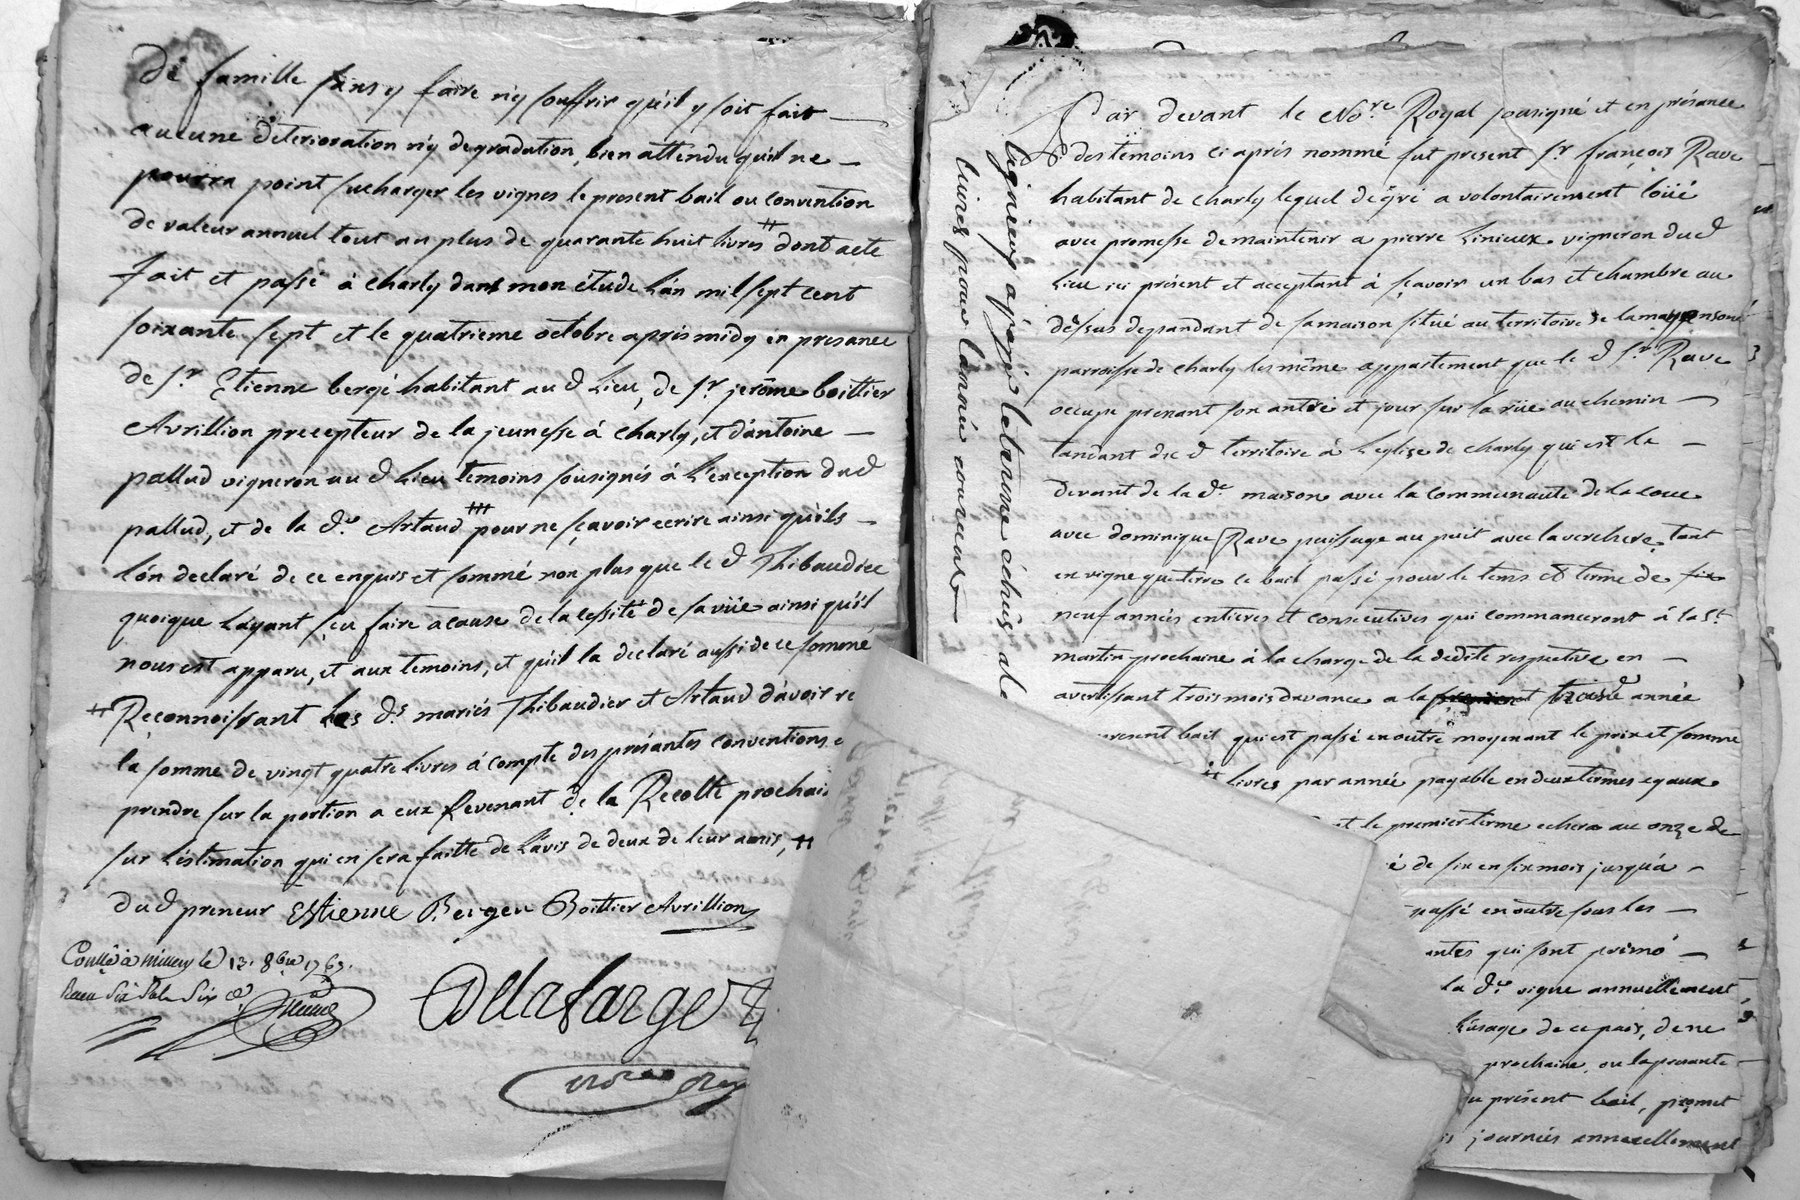 de famille sans y faire n'y souffrir qu'il y soit fait
aucune deterioration n'y degradation, bien attendu qu'il ne
pourra point surcharger les vignes le present bail ou convention
de valeur annuel tout au plus de quarante huit livres dont acte
fait et passé à charly dans mon étude l'an mil sept cent
soixante sept et le quatrieme octobre après midy en presance
de Sr Etienne bergé habitant au d lieu, de Sr jerôme boittier
Avrillion precepteur de la jeunesse à charly, et d'antoine
pallud vigneron au d lieu temoins sousignés à l'exception dud
pallud, et de la de Artaud pour ne sçavoir ecrire ainsi qu'ils
l'on declaré de ce enquis et sommé non plus que le d Thibaudier
quoique layant sçu faire à cause de la cessité de sa vüe ainsi qu'il
nous est apparu, et aux temoins, et qu'il la declaré aussi de ce sommé
Reconnoissant les ds mariés Thibaudier et Artaud d'avoir re
la somme de vingt quatre livres à compte des présantes conventions
prendre sur la portion a eux Revenant de la Recolte prochai
sur l'estimation qui en sera faitte de l'avis de deux de leur amis,
dud preneur Estienne Bergeu Boittier Avrillion
à millery le 13. 8bre 1767.
Recu Six Sols Six d
Delafarge
Par devant le Nore Royal sousigné et en présance
des temoins ci après nommé fut present Sr françois Rave
habitant de charly lequel de gré a volontairement loüé
avec promesse de maintenir a pierre Linieux vigneron dud
lieu ici présent et acceptant à sçavoir un bas et chambre au
dessus depandant de sa maison situé au territoire de la
parroisse de charly les même appartement que le d Sr Rave
occupe prenant son antré et jour sur la rüe ou chemin
tandant du d territoire à L'eglise de charly qui est le
devant de la de maison avec la communauté de la cour
avec dominique Rave puissage au puit avec la verchere tant
en vigne que terre ce bail passé pour le tems et terme de six
neuf années entieres et consecutives qui commanceront à la St
martin prochaine à la charge de la dedite respective en
avertissant trois mois d'avance a la année
present bail qui est passé en outre moyenant le prix et somme
livres par année payable en deux termes egaux
et le premier terme echera au onze de
é de six en six mois jusqu'à
passé en outre sous les
antes qui sont primo
la de vigne annuellement
l'usage de ce païs, de ne
prochaine ou la presante
u présent bail, promet
journées annuellement
livres pour l'année courant